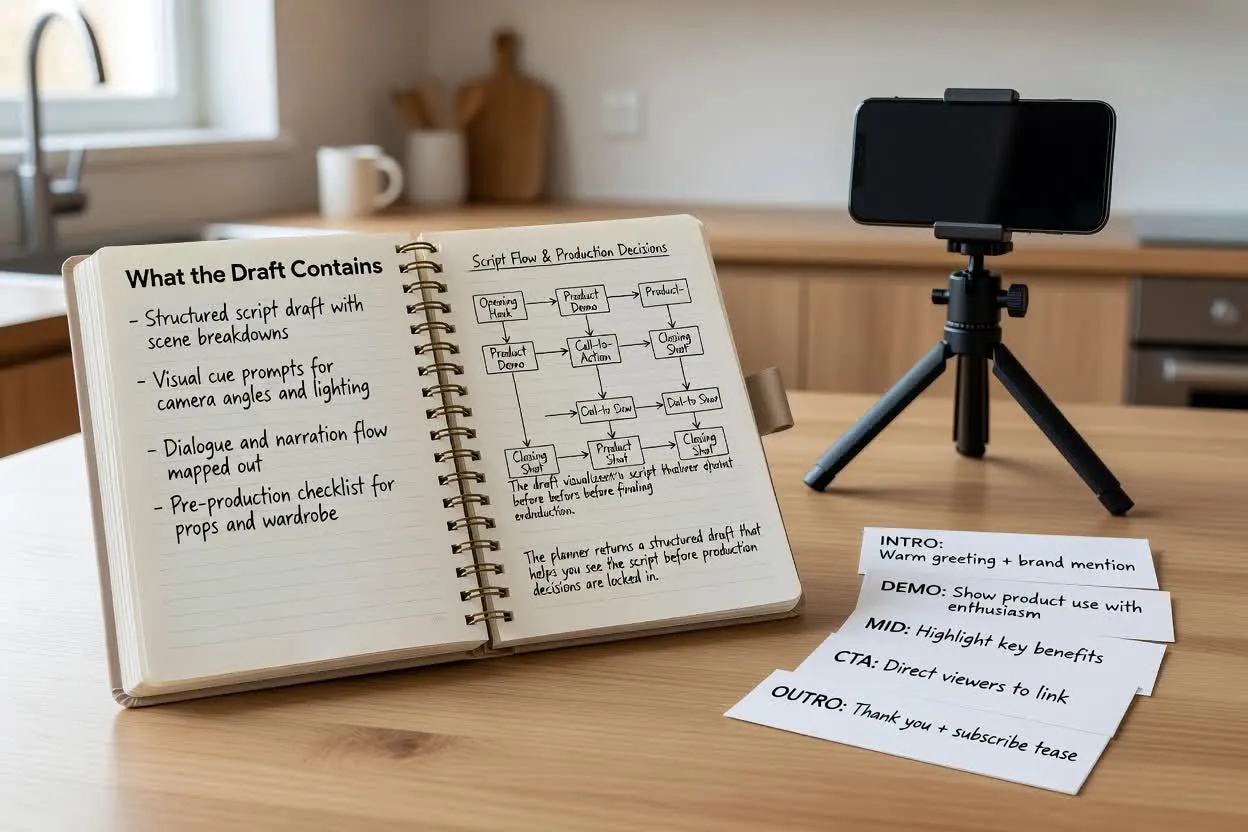 What the Draft Contains
- Structured script draft with
scene breakdowns
- Visual cue prompts for
camera angles and lighting
- Dialogue and narration flow
mapped out
- Pre-production checklist for
props and wardrobe
Script Flow & Production Decisions
Opening
Product
Demo
Product-
Product
Demo
Call-to-
Action
Closing
Shot
Closing
Shot
Product
Shot
Closing
Shot
The draft script
before before
The planner returns a structured draft that
helps you see the script before production
decisions are locked in.
INTRO:
Warm greeting + brand mention
DEMO: Show product use with
enthusiasm
MID: Highlight key benefits
CTA: Direct viewers to link
OUTRO: Thank you + subscribe tease